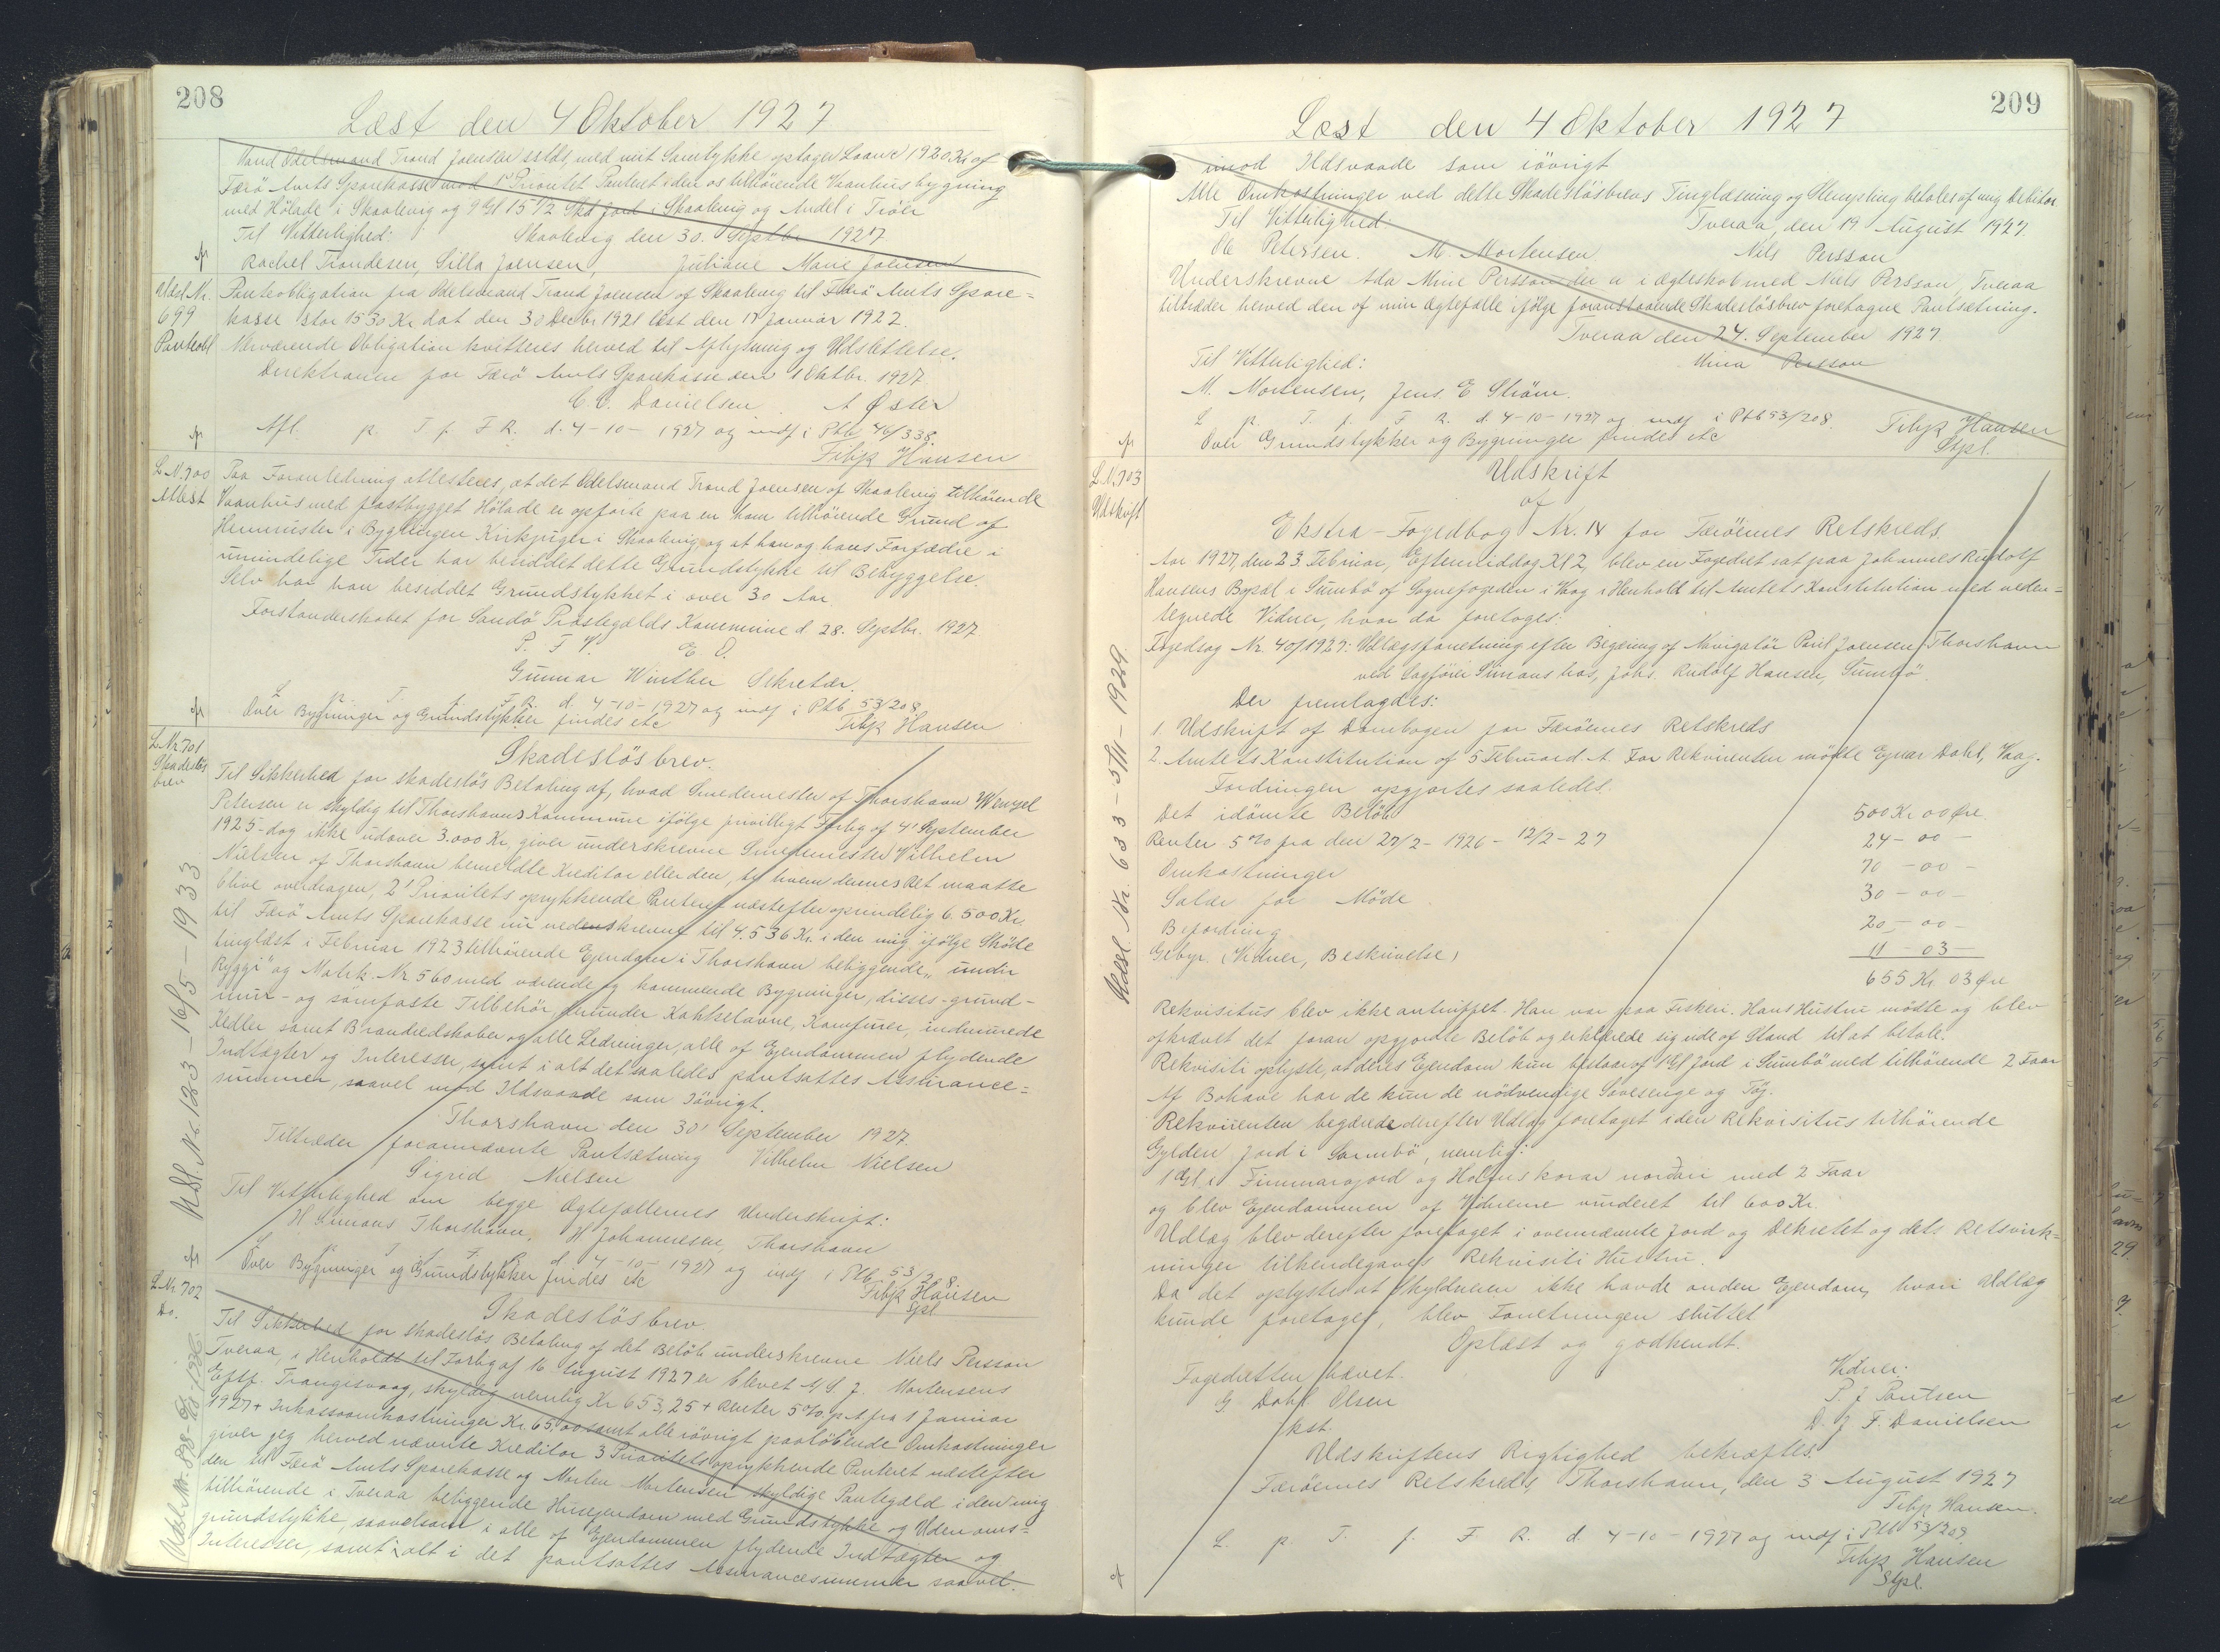 208
Læst den 4 Oktober 1927
Vand Odelsmand Trond Joensen sslds, med mit Samtykke optager Laan 1920 Kr af
Færö Amts Sparekasse mod 1' Prioritet Panteret i den os tilhörende Vaanhusbygning
med Hölade i Skaalevig og 9 Gl 15 1/2 Skd Jord i Skaalevig og Andel i Tröli
Til Vitterlighed: Skaalevig den 30. Septbr 1927
Rachel Trondesen, Silla Joensen, Juliane Marie Joensen
Udsl. Nr. 699 Panteobl
Panteobligation fra Odelsmand Trond Joensen af Skaalevig til Færö Amts Spare=
kasse stor 1530 Kr dat den 30 Decbr 1921 læst den 17 Januar 1922.
Nærværende Obligation kvitteres herved til Aflysning og Udslettelse.
Direktionen for Færö Amts Sparekasse den 1 Oktbr. 1927
C. C. Danielsen. A Öster
Afl. p. T. f. F. R. d. 4-10-1927 og indf i Ptb 46/338.
Filip Hansen
L. N. 700 Attest
Paa Foranledning attesteres, at det Odelsmand Trond Joensen af Skaalevig tilhörende
Vaanhus med fastbygget Hölade er opförte paa en ham tilhörende Grund af
Heimrister i Bygningen Kirkjugar i Skaalevig, og at han og hans Forfædre i
umindelige Tider har besiddet dette Grundstykke til Bebyggelse.
Selv har han besiddet Grundstykket i over 30 Aar
Forstanderskabet for Sandö Præstegælds Kommune d 28. Septbr. 1927
P. F. V. E. O.
Gunnar Winther Sekretær.
L p. T. f. F. R. d. 4-10-1927 og indf i Ptb 53/208
Over Bygninger og Grundstykker findes etc Filip Hansen
L. Nr. 701 Skadeslösbrev
Skadeslösbrev.
Til Sikkerhed for skadeslös Betaling af, hvad Smedemester af Thorshavn Wenzel
Petersen er skyldig til Thorshavns Kommune ifölge privilligt Forlig af 4' September
1925 - dog ikke udover 3.000 Kr, giver underskrevne Smedemester Vilhelm
Nielsen af Thorshavn bemeldte Kreditor eller den, til hvem dennes Ret maatte
blive overdragen, 2' Prioritets oprykkende Panteret næstefter oprindelig 6.500 Kr.
til Færö Amts Sparekasse nu nedenskrevne til 4.536 Kr. i den mig ifölge Sköde
tinglæst i Februar 1923 tilhörende Ejendom i Thorshavn beliggende „undir
Ryggi" og Matrk. Nr 560 med værende og kommende Bygninger, disses - grund-
mur - og sömfaste Tilbehör, herunder Kakkelovne, Komfurer, indmurede
Kedler samt Brandredskaber og alle Ledninger, alle af Ejendommen flydende
Indtægter og Interesser, samt i alt det saaledes pantsattes Assurance=
summer, saavel mod Ildsvaade som Iövrigt.
Thorshavn den 30' September 1927.
Tiltræder forannævnte Pantsætning Vilhelm Nielsen
Sigrid Nielsen
Til Vitterlighed om begge Ægtefællernes Underskrift:
H Simons Thorshavn, H Johannesen, Thorshavn
L p. T. f. F. R. d 4-10-1927 og indf i Ptb 53/208.
Over Bygninger og Grundstykker findes etc Filip Hansen
Stpl.
Udsl. Nr. 123 - 16/5 - 1933
L. Nr 702 Do.
Skadeslösbrev.
Til Sikkerhed for skadeslös Betaling af det Belöb underskrevne Niels Persson
Tveraa, i Henhold til Forlig af 16 August 1927 er blevet M. J. Mortensens
Eftf. Trangisvaag, skyldig nemlig Kr 653,25 + Renter 5% p.A. fra 1 Januar
1927 + Inkassoomkostninger Kr. 65,00 samt alle iövrigt paalöbende Omkostninger
giver jeg herved nævnte Kreditor 3 Prioritets oprykkende Panteret næstefter
den til Færö Amts Sparekasse og Morten Mortensen skyldige Pantegæld i den mig
tilhörende i Tveraa beliggende Husejendom med Grundstykke og Udenoms=
grundstykke, saavelsom i alle af Ejendommen flydende Indtægter og
Interesser, samt i alt i det pantsattes Assurancesummer saavel.
209
Læst den 4 Oktober 1927
imod Ildsvaade som iövrigt
Alle Omkostninger ved dette Skadeslösbrevs Tinglæsning og Stempling betales af mig Debitor
Til Vitterlighed Tveraa, den 19 August 1927
Ole Petersen. M. Mortensen Nils Persson
Underskrevne Ada Mine Persson der er i Ægteskab med Niels Persson, Tveraa
tiltræder herved den af min Ægtefælle ifölge foranstaaende Skadeslösbrev foretagne Pantsætning.
Tveraa den 24. September 1927
Til Vitterlighed: Mina Persson
M. Mortensen, Jens E Ström.
L p. T. f. F R. d. 4-10-1927 og indf i Ptb 53/208. Filip Hansen
Over Grundstykker og Bygninger findes etc Stpl.
L. N. 703 Udskrift
Udskrift
af
Ekstra-Fogedbog Nr. 14 for Færöernes Retskreds.
Aar 1927, den 23 Februar, Eftermiddag Kl 2, blev en Fogedret sat paa Johannes Rudolf
Hansens Bopæl i Sumbö af Sognefogeden i Vaag i Henhold til Amtets Konstitution med neden=
tegnede Vidner, hvor da foretoges:
Fogedsag Nr. 40/1927: Udlægsforretning efter Begæring af Navigatör Poul Joensen Thorshavn
ved Sagförer Simons hos, Johs. Rudolf Hansen, Sumbö.
Der fremlagdes:
1. Udskrift af Dombogen for Færöernes Retskreds
2. Amtets Konstitution af 5 Februar d. A. For Rekvirenten mödte Ejnar Dahl, Vaag.
Fordringen opgjortes saaledes:
Det idömte Belöb 500 Kr 00 Öre
Renter 5% fra den 27/2 - 1926 - 12/2 - 27 24 - 00 -
Omkostninger 70 - 00 -
Salær for Möde 30 - 00 -
Befordring 20 - 00 -
Gebyr. (Vidner, Beskrivelse) 11 - 03 -
655 Kr. 03 Öre
Rekvisitus blev ikke antruffet. Han var paa Fiskeri. Hans Hustru mödte og blev
afkrævet det foran opgjordte Belöb og erklærede sig ude af Stand til at betale.
Rekvisiti oplyste, at deres Ejendom kun bestaar af 1 Gl Jord i Sumbö med tilhörende 2 Faar
Af Bohave har de kun de nödvendige Sovesenge og Töj.
Rekvirenten begærede derefter Udlæg foretaget i den Rekvisitus tilhörende
Gylden Jord i Sumbö, nemlig:
1 Gl. i Finnmarajord og Holmskorar nordari med 2 Faar
og blev Ejendommen af Vidnerne vurderet til 600 Kr.
Udlæg blev derefter foretaget i ovennævnte Jord og Dekretet og dets Retsvirk=
ninger tilkendegaves Rekvisiti Hustru.
Da det oplystes at Skyldneren ikke havde anden Ejendom, hvori Udlæg
kunde foretages, blev Forretningen sluttet
Oplæst og godkendt.
Fogedretten hævet. Vidner:
G. Dahl Olsen P. J Poulsen
kst. D. J. F. Danielsen
Udskriftens Rigtighed bekræftes.
Færöernes Retskreds, Thorshavn, den 3 August 1927
Filip Hansen.
L. p. T. f. F R. d. 4-10-1927 og indf i Ptb 53/209
Filip Hansen
Stpl.
Udsl. Nr. 633 - 5/11 - 1929